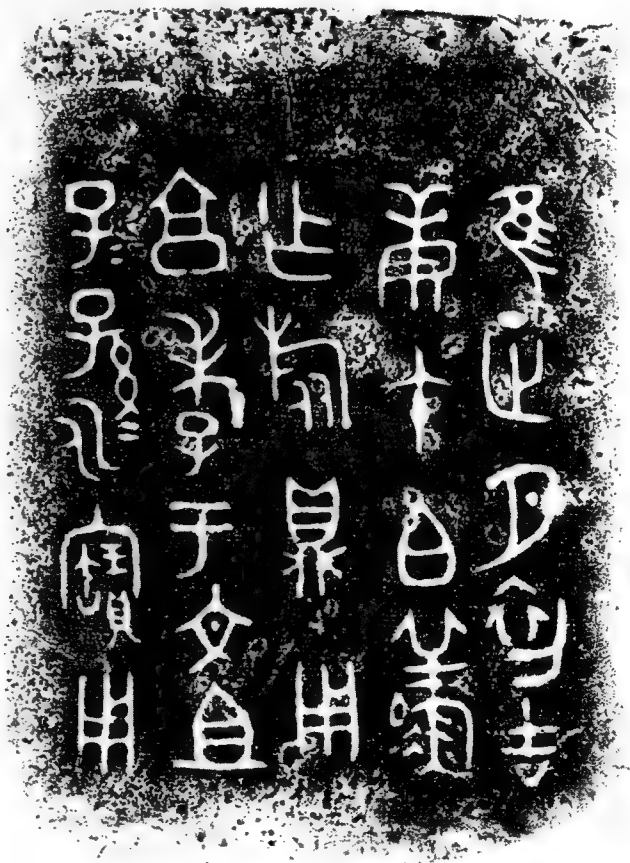 隹正月初吉
庚午白鮮
乍旅鼎用
享孝于文且
子=孫=永寶用